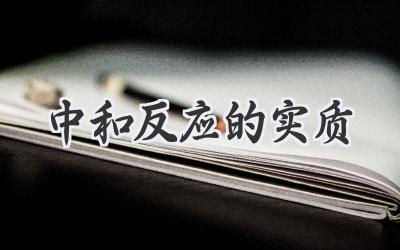 中和反应的实质